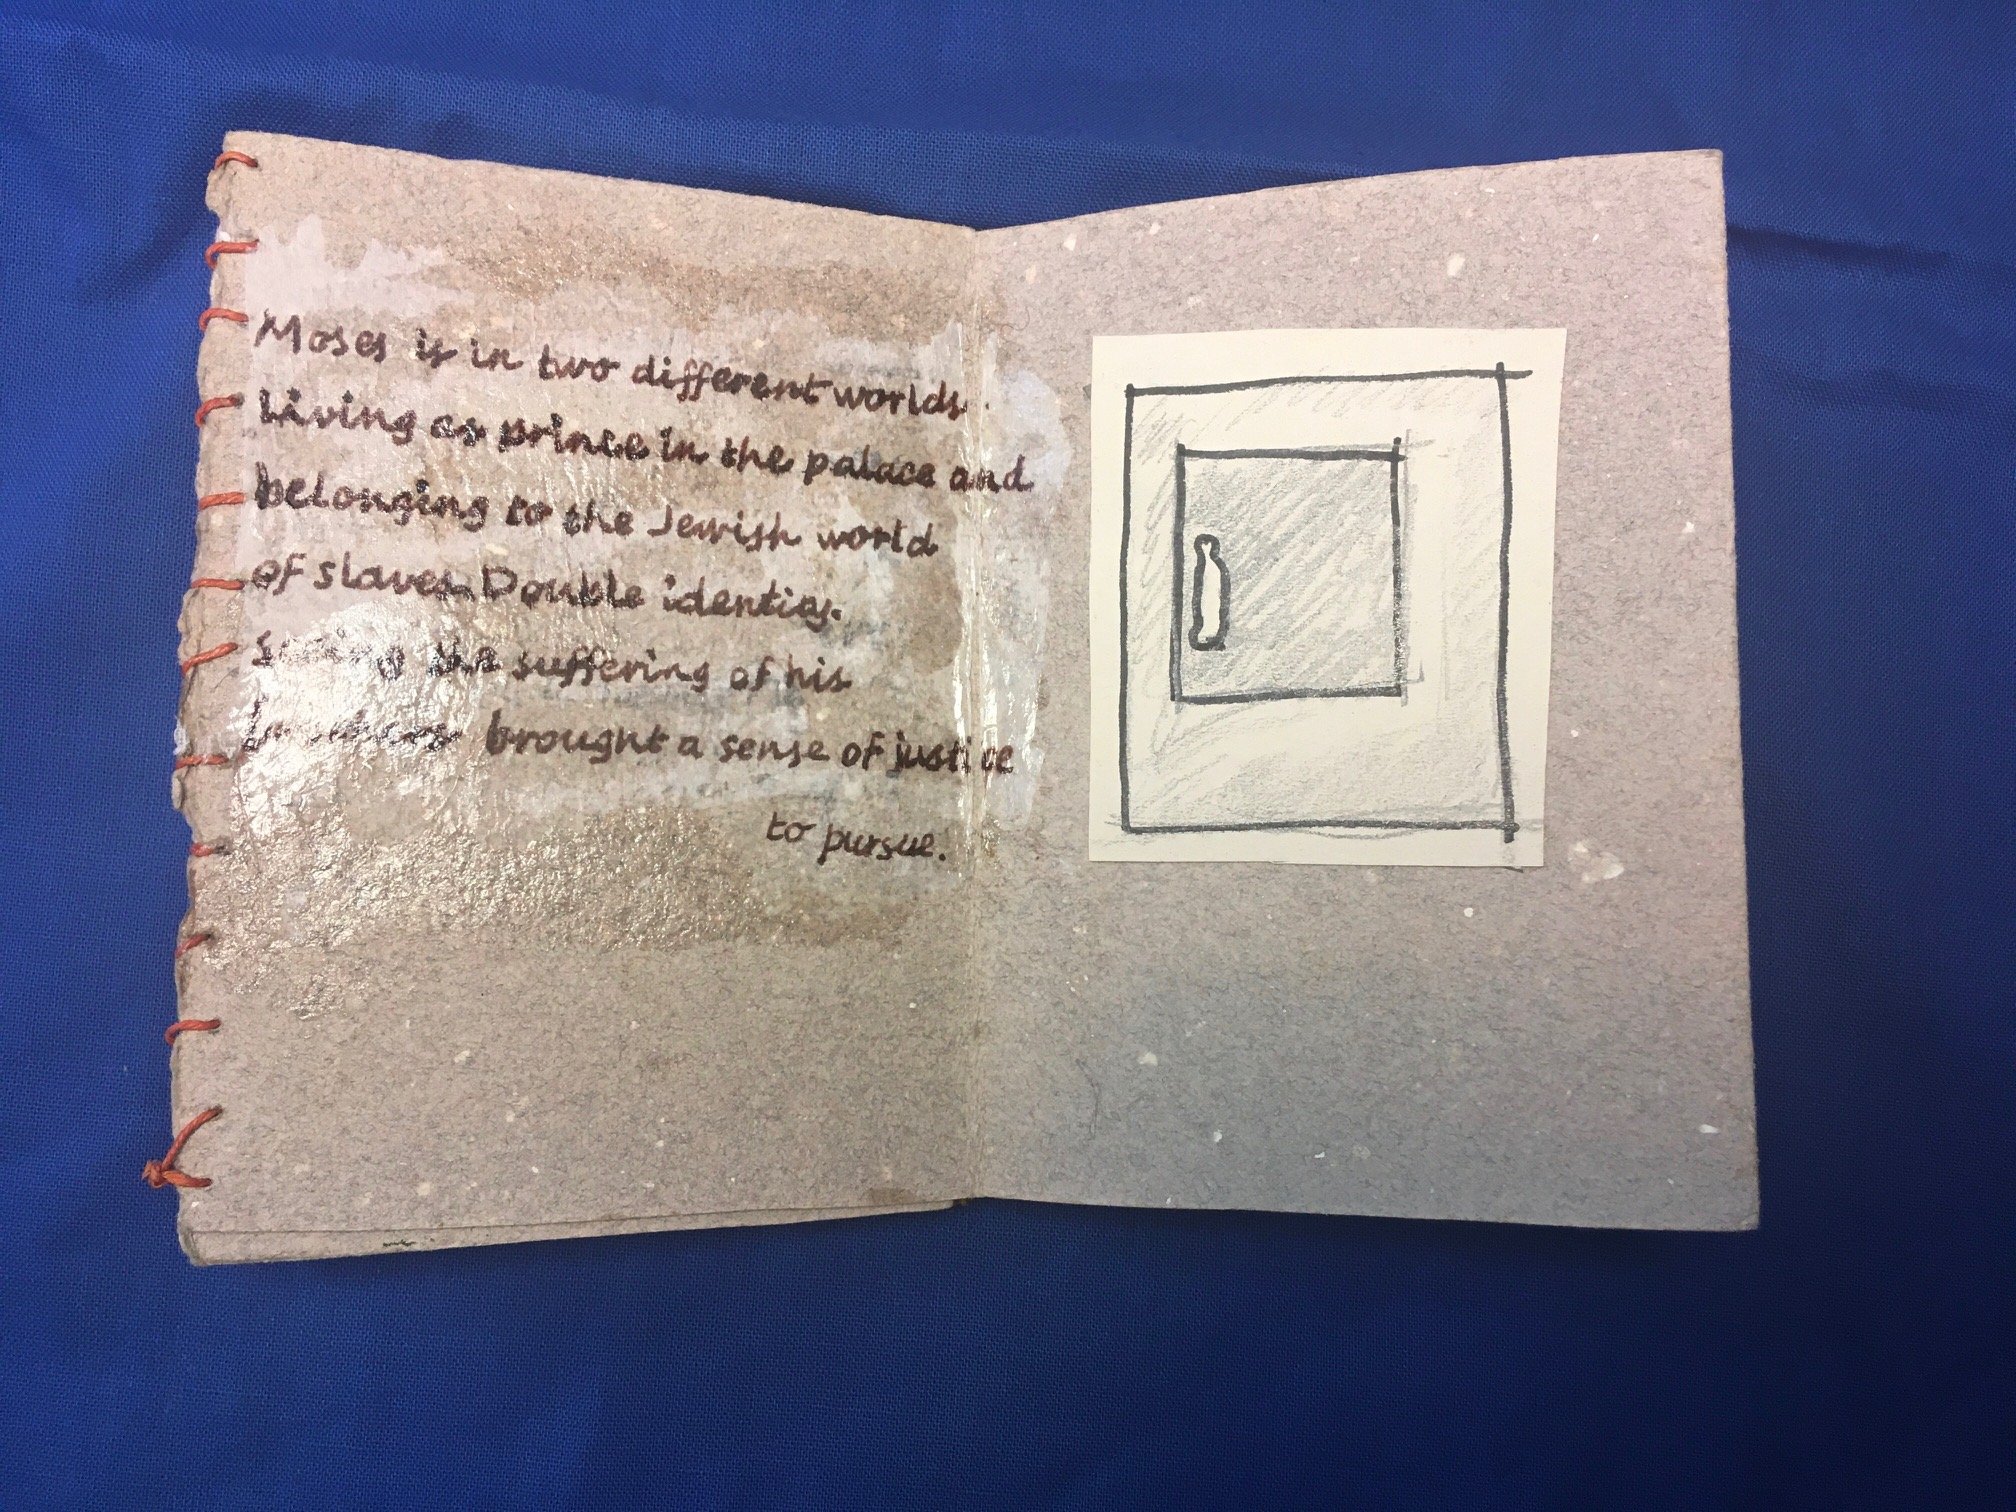 Moses is in two different worlds.
Living as prince in the palace and
belonging to the Jewish world
of slaves. Double identity.
seeing the suffering of his
brothers brought a sense of justice
to pursue.